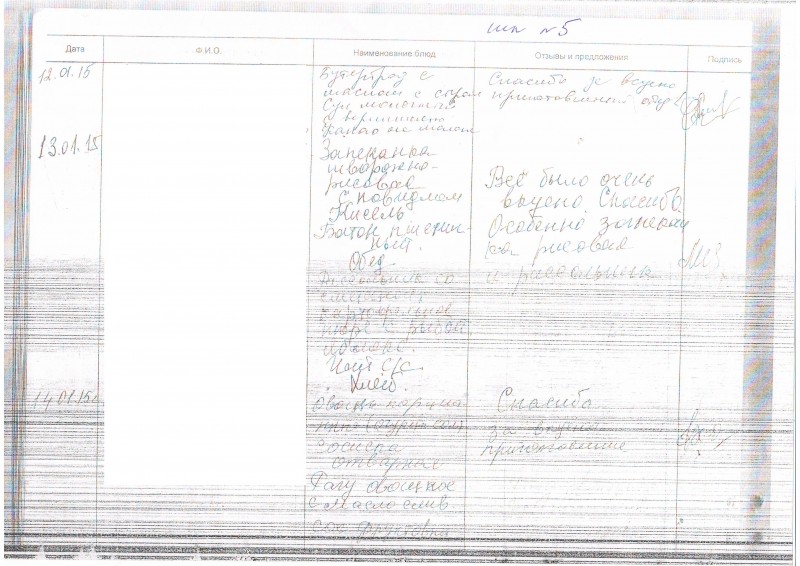 шк №5
Дата Ф.И.О. Наименование блюд Отзывы и предложения Подпись
12.01.15
Бутерброд с
маслом с сыром
Суп молочный
с вермишелью
Какао на молоке
Спасибо за вкусно
приготовленный обед
13.01.15
Запеканка
творожно-
рисовая
с повидлом
Кисель
Батон пшенич-
ный.
Обед.
со
пюре с рыбой
Чай с/с
Хлеб.
Всё было очень
вкусно. Спасибо.
Особенно запекан
ка рисовая
и рассольник
14.01.15
Овощи
Сосиски
отварная
Рагу овощное
с масло слив
Спасибо
за вкусно
приготовление